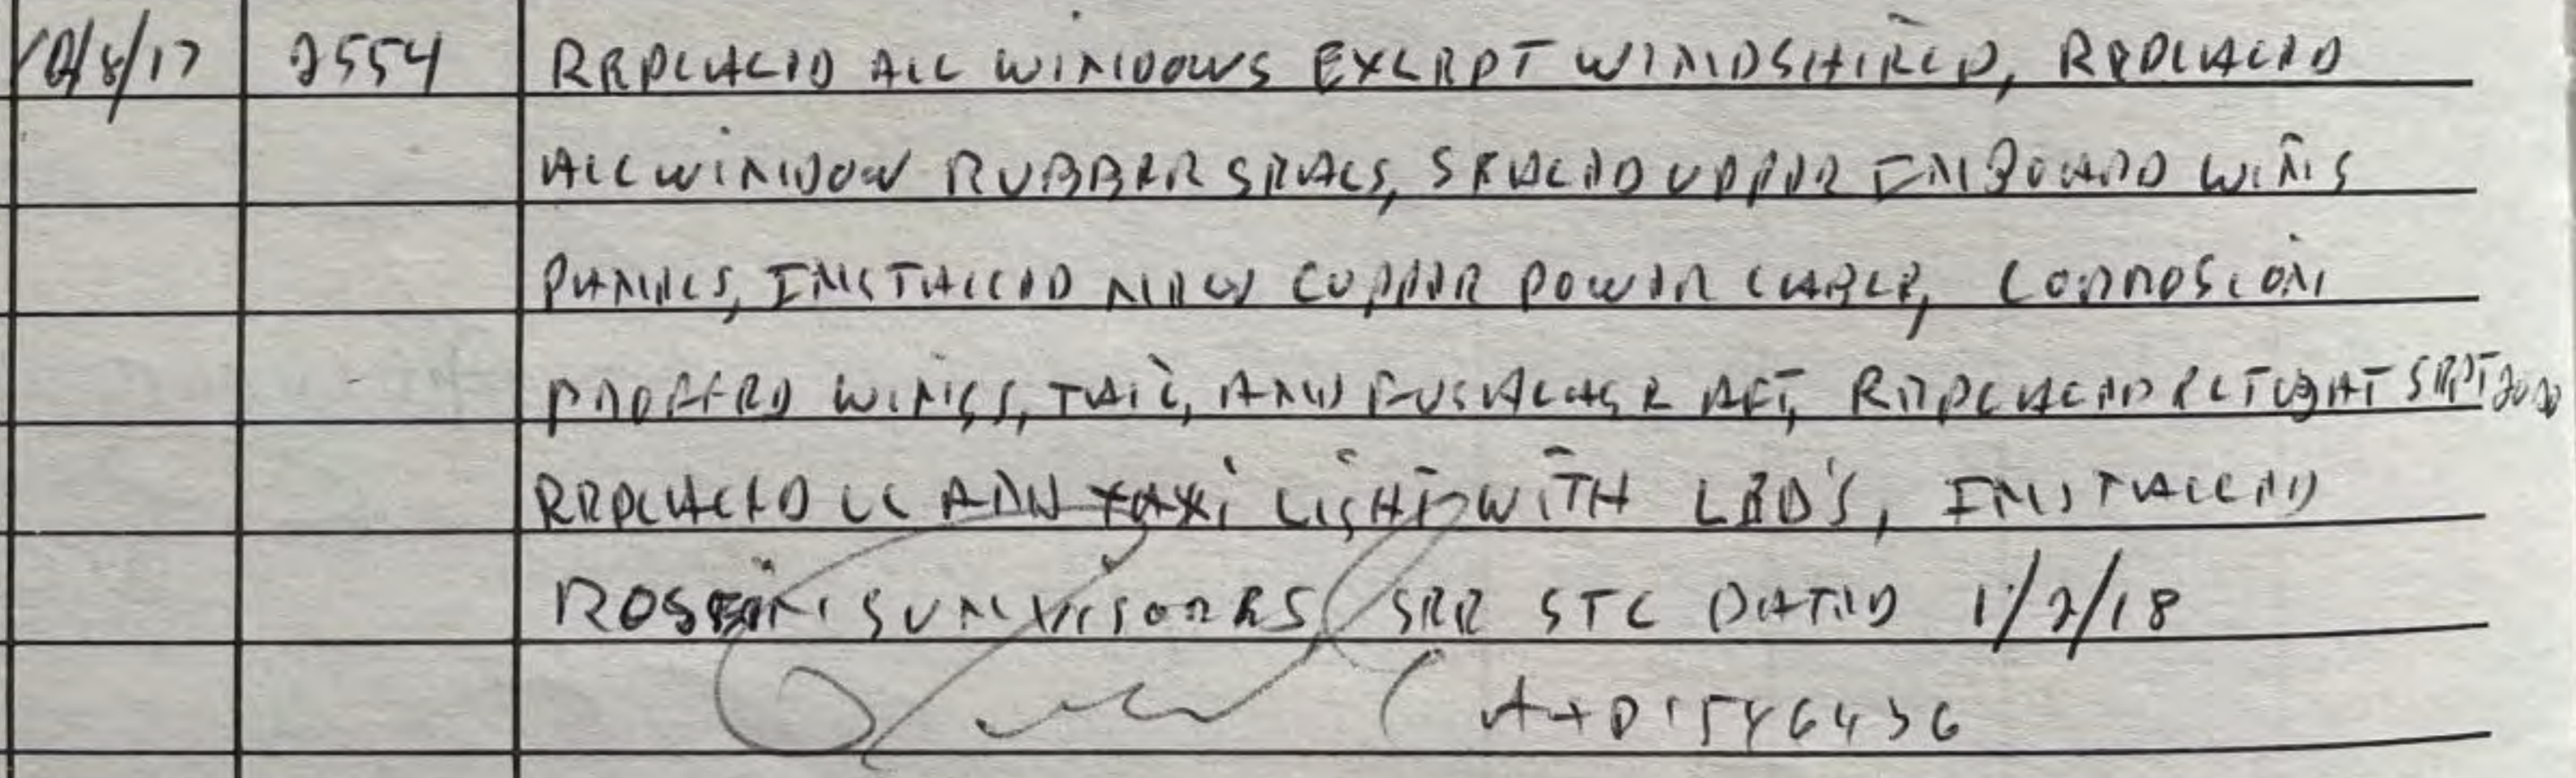 12/8/17 2554 REPLACED ALL WINDOWS EXCEPT WINDSHIELD, REPLACED
ALL WINDOW RUBBER SEALS, SEALED UPPER INBOARD WING
PANELS, INSTALLED NEW COPPER POWER CABLE, CORROSION
PROOFED WINGS, TAIL, AND FUSALAGE AFT, REPLACED ELT
REPLACED LL AND TAXI LIGHT WITH LED'S, INSTALLED
ROSEN SUNVISORES SEE STC DATED 1/2/18
A+P